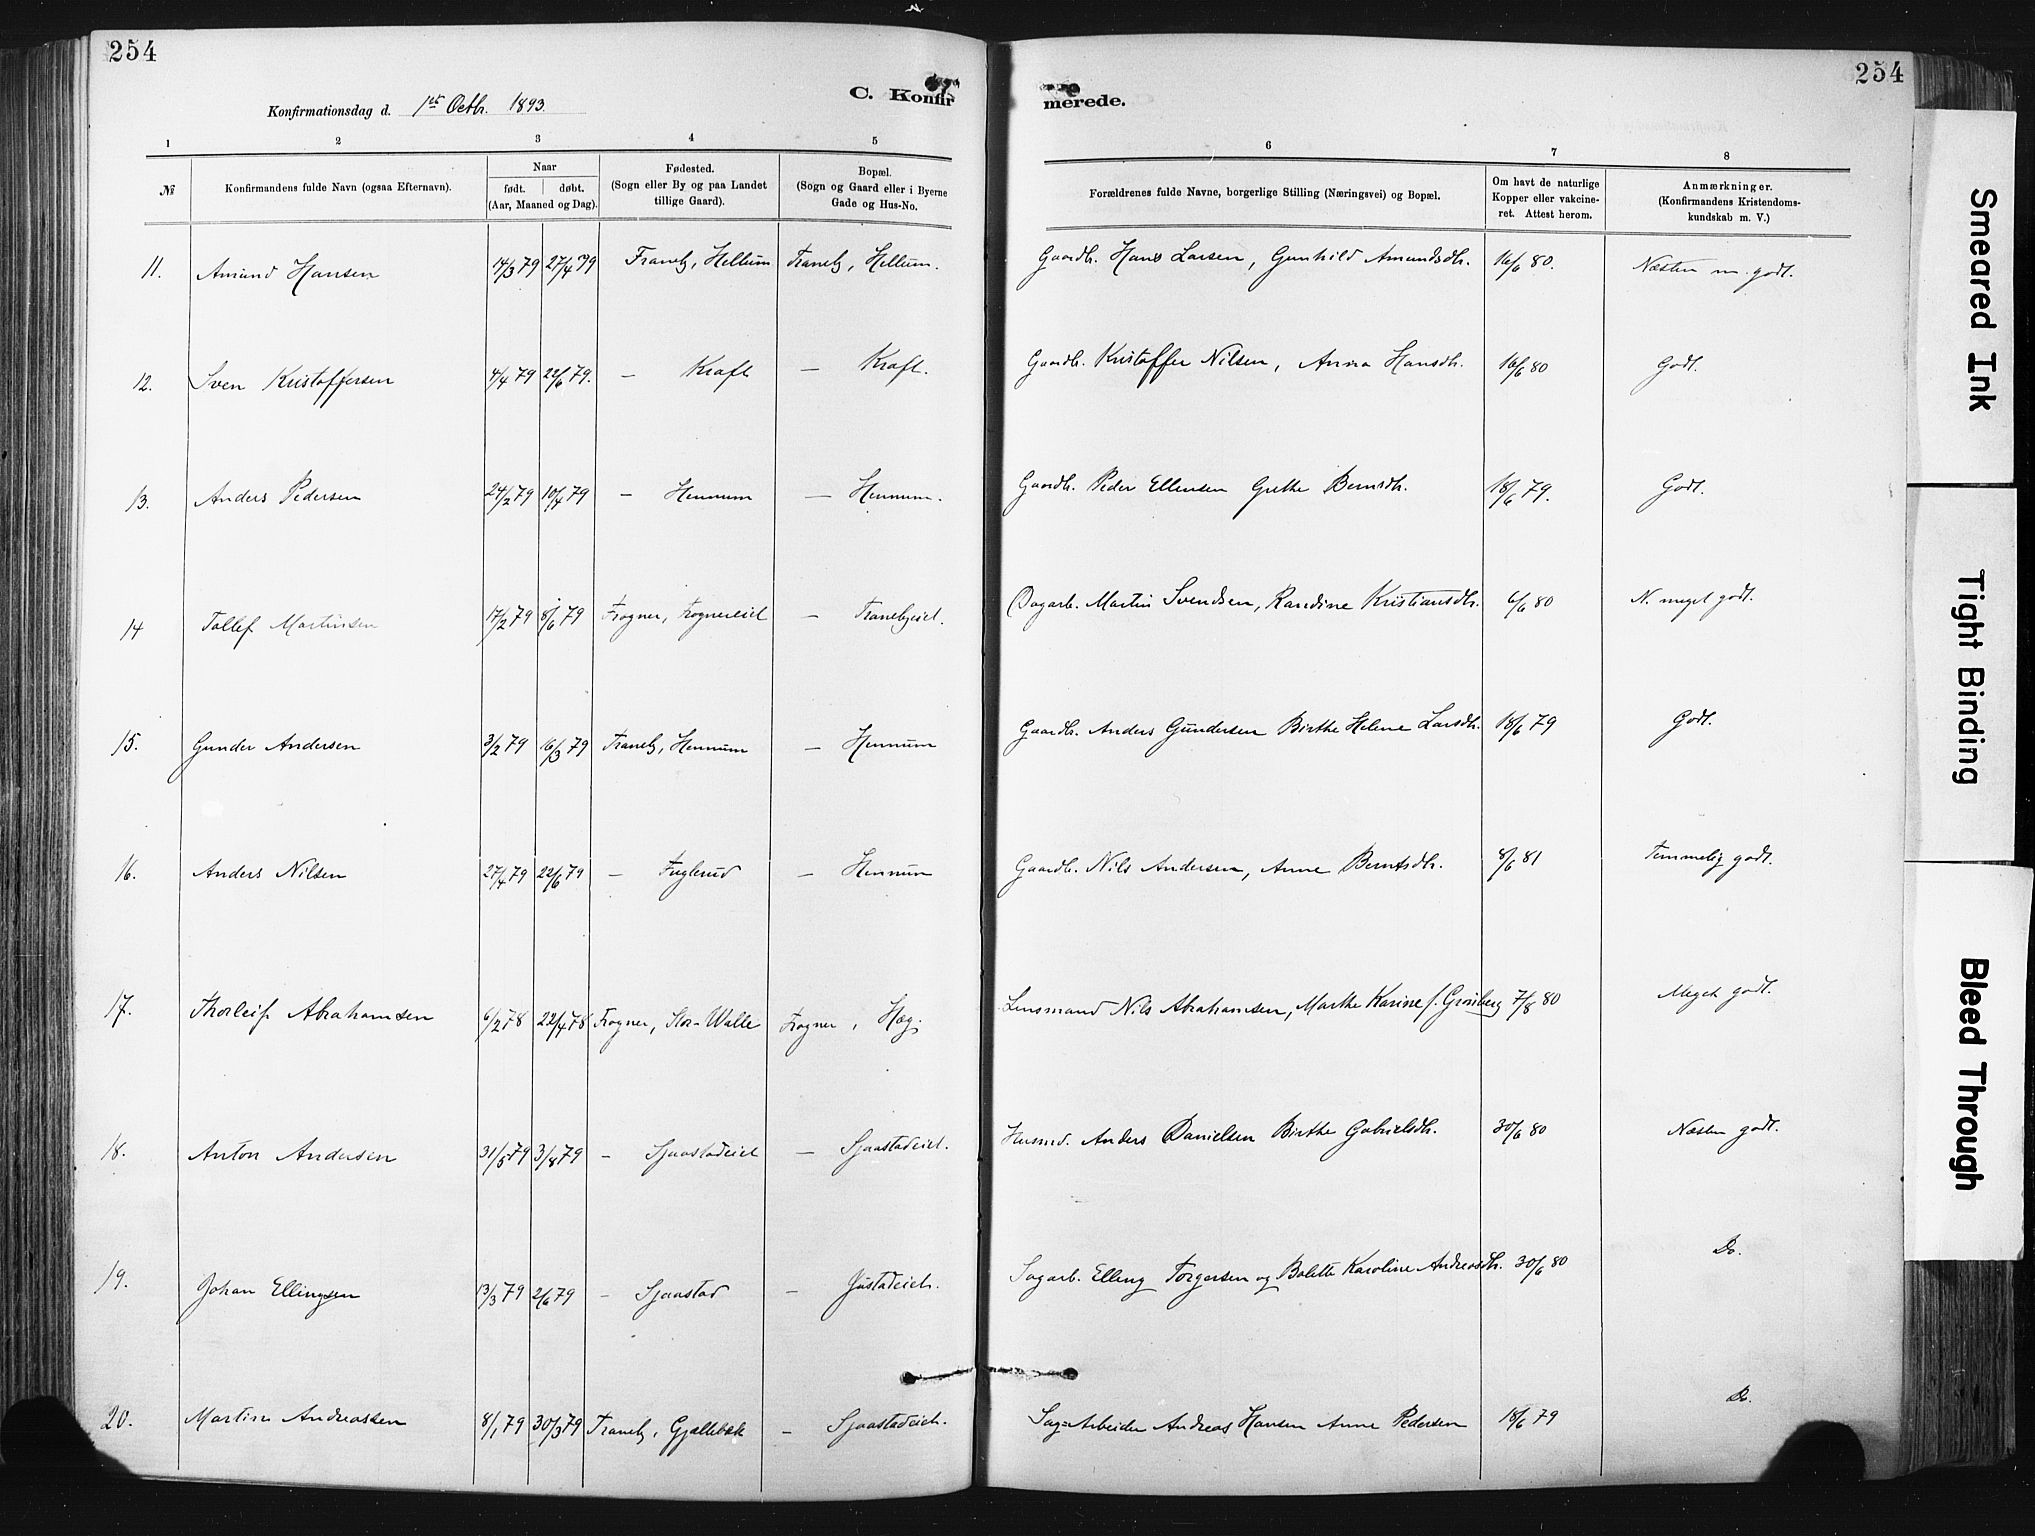 254
254
Konfirmationsdag d. 1ste Octbr. 1893.
C. Konfirmerede.
1 2 3 4 5 6 7 8
№ Konfirmandens fulde Navn (ogsaa Efternavn). Naar født. døbt. (Aar, Maaned og Dag). Fødested. (Sogn eller By og paa Landet tillige Gaard). Bopæl. (Sogn og Gaard eller i Byerne Gade og Hus-No. Forældrenes fulde Navne, borgerlige Stilling (Næringsvei) og Bopæl. Om havt de naturlige Kopper eller vakcineret. Attest herom. Anmærkninger. (Konfirmandens Kristendomskundskab m. V.)
11. Amund Hansen 14/3 79 27/4 79 Tranby, Hellum Tranby, Hellum. Gaardb. Hans Larsen, Gunhild Amundsdtr. 16/6 80. Næsten m. godt.
12. Sven Kristoffersen 4/4 79 22/6 79. — Kraft — Kraft. Gaardb. Kristoffer Nilsen, Anna Hansdtr. 16/6 80 Godt.
13. Anders Pedersen 24/2 79 10/4 79 — Hennum — Hennum. Gaardb. Peder Ellensen Grethe Berntsdtr. 18/6 79. Godt.
14 Tollef Martinsen 17/2 79 8/6 79 Frogner, Frognereiet — Tranbyeiet. Dagarb. Martin Svendsen, Randine Kristiansdtr. 6/6 80 N. meget godt.
15. Gunder Andersen 3/2 79 16/3 79 Tranby, Hennum — Hennum Gaardb. Anders Gundersen Birthe Helene Larsdtr. 18/6 79 Godt.
16. Anders Nilsen 27/4 79 22/6 79 — Fuglerud — Hennum Gaardb. Nils Andersen, Anne Berntsdtr. 8/6 81 Temmelig godt.
17. Thorleif Abrahamsen 6/2 78 22/4 78 Frogner, Stor-Walle Frogner, Hæg. Lensmand Nils Abrahamsen, Marthe Karine f. Grinberg 7/8 80 Meget godt.
18. Anton Andersen 31/5 79 3/8 79 — Sjaastadeiet — Sjaastadeiet. Husmd. Anders Danielsen Birthe Gabrielsdtr. 30/6 80 Næsten godt.
19. Johan Ellingsen 13/3 79 2/6 79 — Sjaastad — Justadeiet. Sagarb. Elling Torgersen og Bolette Karoline Andreasdtr. 30/6 80 Do.
20. Martin Andreassen 8/1 79 30/3 79 Tranby, Gjellebæk — Sjaastadeiet. Sag-Arbeider Andreas Hansen Anne Pedersen 18/6 79 Do.
Smeared Ink
Tight Binding
Bleed Through